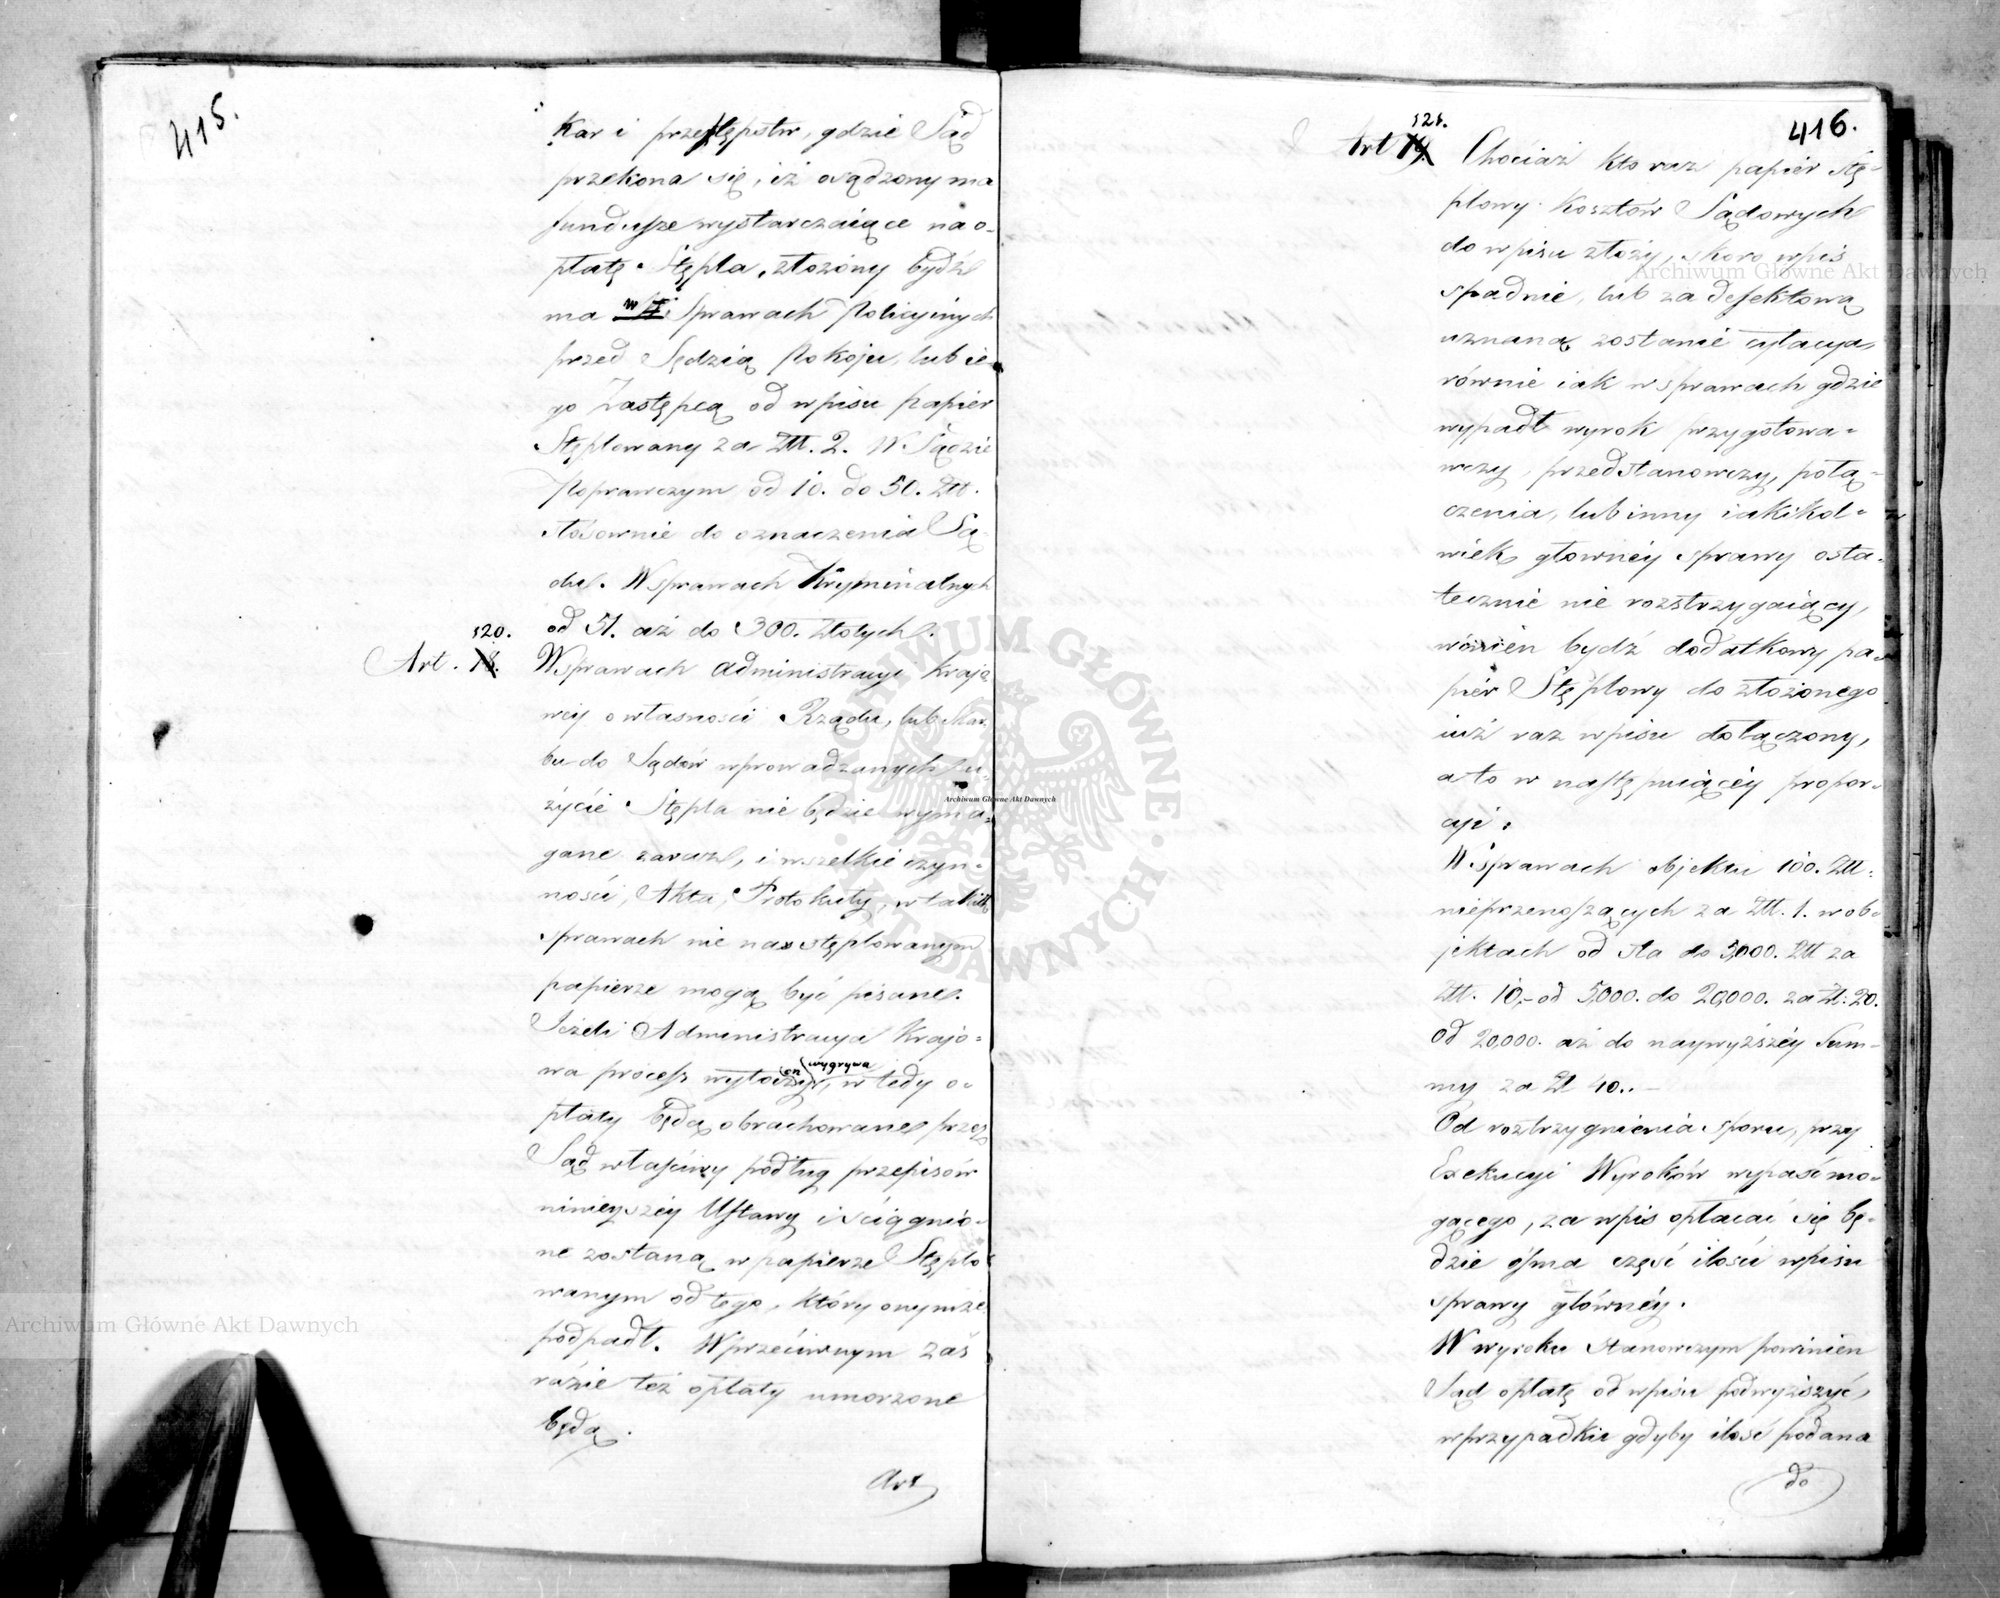 415.
Kar i przestępstw, gdzie Sąd
przekona się, iż osądzony ma
fundusze wystarczaiące na o-
płatę Stępla, złożony bydź
ma w Sprawach Policyinych
przed Sędzią Pokoju, lub ie-
go Zastępcą od wpisu papier
Stęplowany za Złł. 2. W Sądzie
Poprawczym od 10. do 50. Złł.
stosownie do oznaczenia Są-
du. W sprawach Kryminalnych
od 51. aż do 300. Złotych.
120.
Art. 18. W sprawach administracyi krajo-
wéy o własności Rządu, lub Skar-
bu do Sądów wprowadzanych u-
życie Stępla nie będzie wyma-
gane zaraz, i wszelkie czyn-
ności, Akta, Protokuły, w takich
sprawach nie na stęplowanym
papierze mogą być pisane.
Jeżeli Administracya Krajo-
wa process wytoczony wygrywa, w tedy o-
płaty będą obrachowane przez
Sąd właściwy podług przepisów
ninieyszéy Ustawy i ściągnio-
ne zostaną w papierze Stęplo-
wanym od tego, który onymże
podpadł. W przeciwnym zaś
razie też opłaty umorzone
będą.
Art
416.
121.
Art 19. Chociaż kto raz papiér stę-
plowy Kosztów Sądowych
do wpisu złoży, skoro wpis
spadnie, lub za defektową
uznaną zostanie cytacya,
równie iak w sprawach gdzie
wypadł wyrok przygotowa-
wczy, przedstanowczy, połą-
czenia, lub inny iakikol-
wiek głównéy sprawy osta-
tecznie nie rozstrzygaiący,
winien bydź dodatkowy pa-
piér Stęplowy do złożonego
iuż raz wpisu dołączony,
a to w następuiącéy propor-
cyi.
W Sprawach objektu 100. Złł.
nieprzenoszących za Złł. 1. w ob-
jektach od sta do 5,000. Złł za
Złł. 10,- od 5,000. do 20,000. za Zł: 20.
od 20,000. aż do naywyższéy Sum-
my za Zł 40..-
Od roztrzygnienia sporu, przy
Exekucyi Wyroków wypaść mo-
gącego, za wpis opłacać się bę-
dzie ósma część ilości wpisu
sprawy głównéy.
W wyroku stanowczym powinien
Sąd opłatę od wpisu podwyższyć,
w przypadku gdyby ilość podana
do
Archiwum Główne Akt Dawnych
Archiwum Główne Akt Dawnych
Archiwum Główne Akt Dawnych
ARCHIWUM GŁÓWNE AKT DAWNYCH